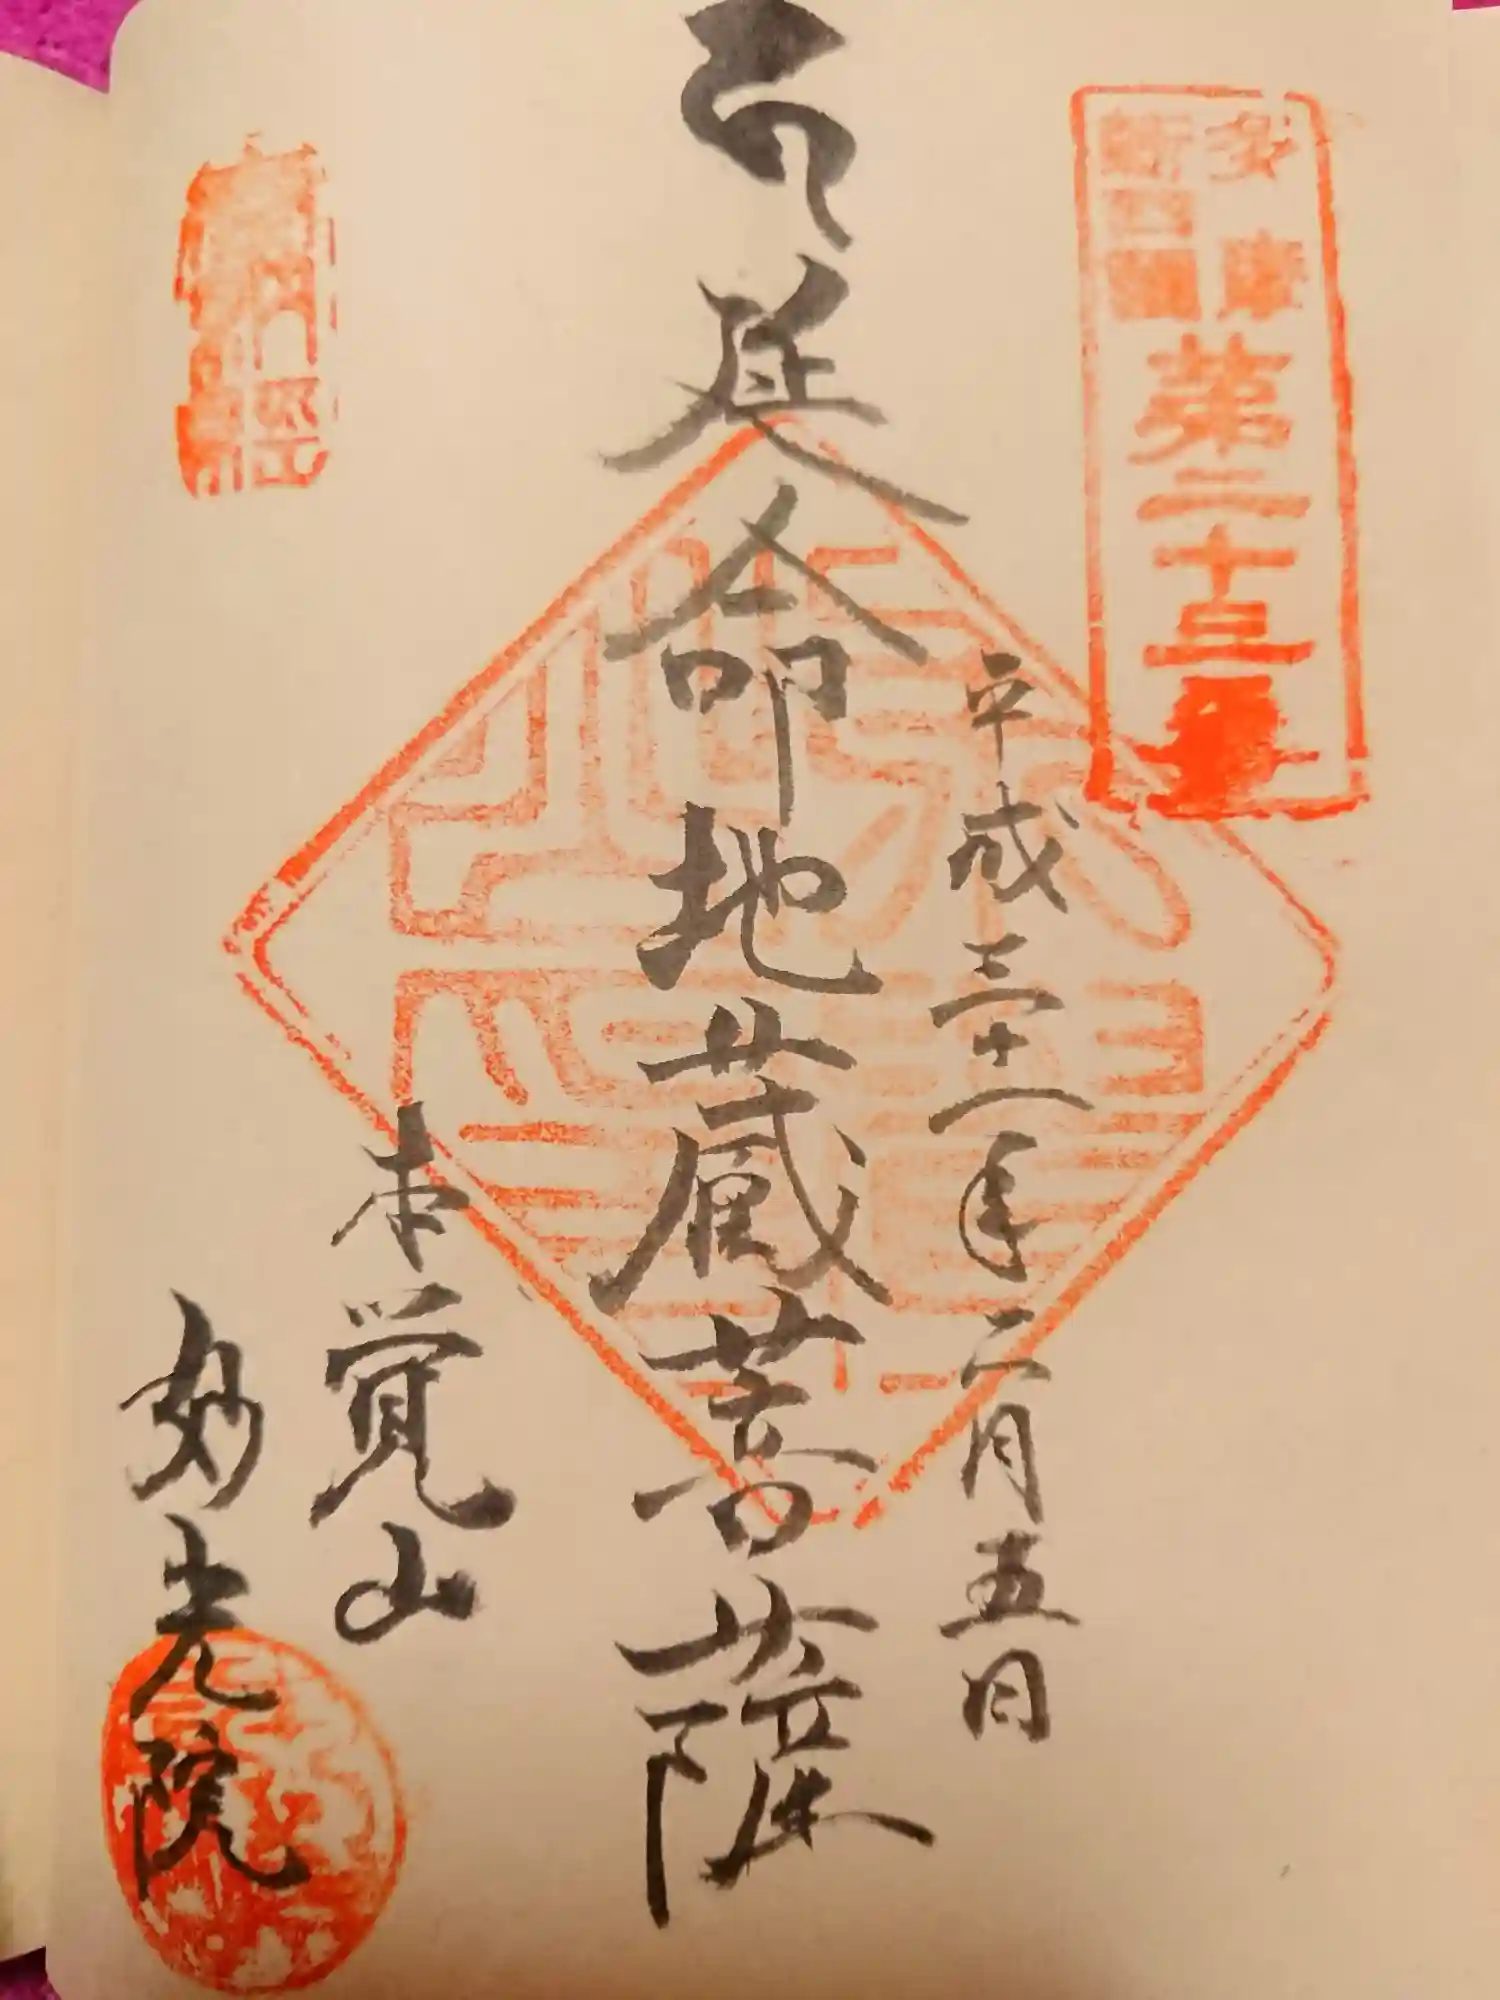 多摩
新四国
第二十五番
平成三十一年二月五日
延命地蔵菩薩
本覚山
妙光院